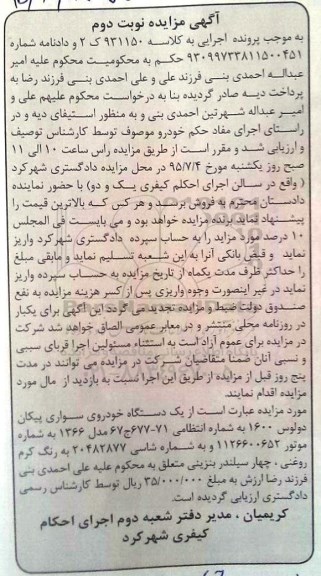 آگهی مزایده نوبت دوم
به موجب پرونده اجرایی به کلاسه ۹۳۱۱۵۰ ک ۲ و دادنامه شماره
۹۳۰۹۹۷۳۳۸۱۱۵۰۰۴۵۱ حکم به محکومیت محکوم علیه امیر
عبداله احمدی بنی فرزند علی و علی احمدی بنی فرزند رضا به
پرداخت دیه صادر گردیده بنا به درخواست محکوم علیهم علی و
امیر عبداله شهرتین احمدی بنی و به منظور استیفای دیه و در
راستای اجرای مفاد حکم خودرو موصوف توسط کارشناس توصیف
و ارزیابی شد و مقرر است از طریق مزایده راس ساعت ۱۰ الی ۱۱
صبح روز یکشنبه مورخ ۹۵/۷/۴ در محل مزایده دادگستری شهرکرد
( واقع در سالن اجرای احکلم کیفری یک و دو) با حضور نماینده
دادستان محترم به فروش برسد و هر کس که بالاترین قیمت را
پیشنهاد نماید برنده مزایده خواهد بود و می بایست فی المجلس
۱۰ درصد مورد مزاید را به حساب سپرده دادگستری شهرکرد واریز
نماید و قبض بانکی آنرا به این شعبه تسلیم نماید و مابقی مبلغ
را حداکثر ظرف مدت یکماه از تاریخ مزایده به حساب سپرده واریز
نماید در غیر اینصورت وجوه واریزی پس از کسر هزینه مزایده به نفع
صندوق دولت ضبط و مزایده تجدید می گردد این آگهی برای یکبار
در روزنامه محلی منتشر و در معابر عمومی الصاق خواهد شد شرکت
در مزایده برای عموم آزاد است به استثناء مسئولین اجرا قربای سببی
و نسبی آنان ضمنا متقاضیان شرکت در مزایده می توانند در مدت
پنج روز قبل از مزایده از طریق این اجرا نسبت به بازدید از مال مورد
مزایده اقدام نمایند.
مورد مزایده عبارت است از یک دستگاه خودروی سواری پیکان
دولوس ۱۶۰۰ به شماره انتظامی ۷۱-۶۷۷ج۶۷ مدل ۱۳۶۶ به شماره
موتور ۱۱۲۶۶۰۰۶۵۲ و به شماره شاسی ۲۰۴۸۲۸۷۷ به رنگ کرم
روغنی ، چهار سیلندر بنزینی متعلق به محکوم علیه علی احمدی بنی
فرزند رضا ارزش به مبلغ ۳۵/۰۰۰/۰۰۰ ریال توسط کارشناس رسمی
دادگستری ارزیابی گردیده است.
کریمیان ، مدیر دفتر شعبه دوم اجرای احکام
کیفری شهرکرد